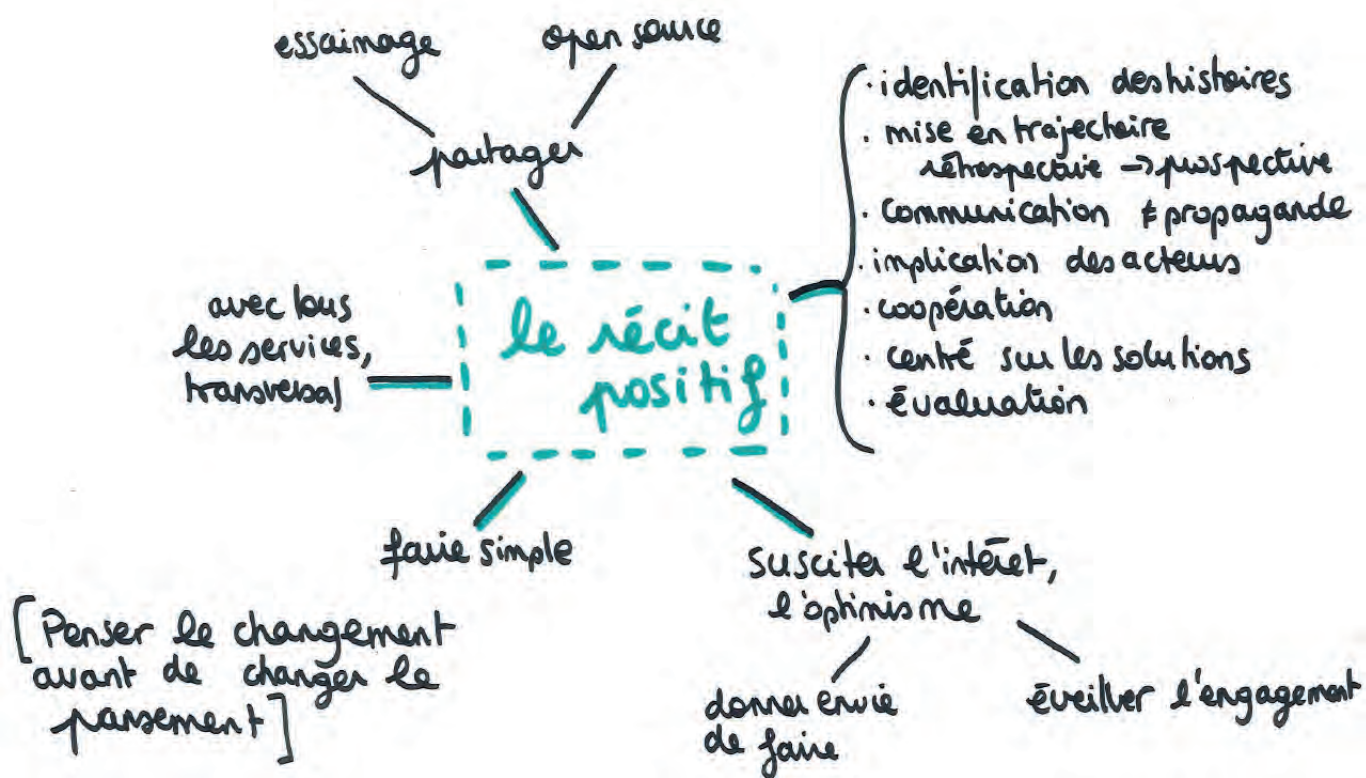 essaimage
open source
partager
le récit
positif
· identification des histoires
· mise en trajectoire
rétrospective → prospective
· communication ≠ propagande
· implication des acteurs
· coopération
· centré sur les solutions
· évaluation
avec tous
les services,
transversal
faire simple
susciter l'intérêt,
l'optimisme
donner envie
de faire
éveiller l'engagement
[Penser le changement
avant de changer le
pansement]